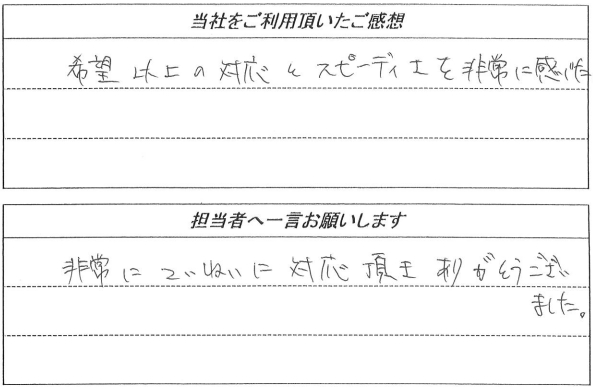 当社をご利用頂いたご感想
希望以上の対応とスピーディさを非常に感じた
担当者へ一言お願いします
非常にていねいに対応頂きありがとうござい
ました。